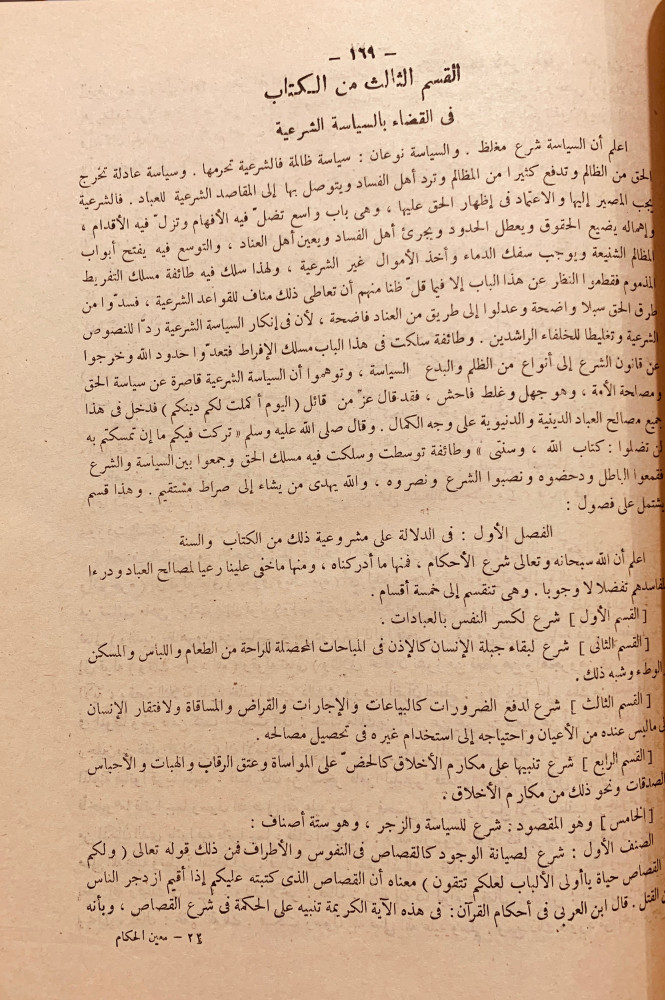 — ١٦٩ —
القسم الثالث من الكتاب
فى القضاء بالسياسة الشرعية
اعلم أن السياسة شرع مغلظ . والسياسة نوعان : سياسة ظالمة فالشريعة تحرمها . وسياسة عادلة تخرج
الحق من الظالم وتدفع كثيرا من المظالم وترد أهل الفساد ويتوصل بها إلى المقاصد الشرعية للعباد . فالشرعية
يجب المصير إليها والاعتماد فى إظهار الحق عليها ، وهى باب واسع تضلّ فيه الأفهام وتزلّ فيه الأقدام ،
وإهماله يضيع الحقوق ويعطل الحدود ويجرئ أهل الفساد ويعين أهل العناد ، والتوسع فيه يفتح أبواب
المظالم الشنيعة ويوجب سفك الدماء وأخذ الأموال غير الشرعية ، ولهذا سلك فيه طائفة مسلك التفريط
المذموم فقطعوا النظار عن هذا الباب إلا فيما قلّ ظنا منهم أن تعاطى ذلك مناف للقواعد الشرعية ، فسدّوا من
طرق الحق سبلا واضحة وعدلوا إلى طريق من العناد فاضحة ، لأن فى إنكار السياسة الشرعية ردّا للنصوص
الشرعية وتغليطا للخلفاء الراشدين . وطائفة سلكت فى هذا الباب مسلك الإفراط فتعدّوا حدود الله وخرجوا
عن قانون الشرع إلى أنواع من الظلم والبدع السياسة ، وتوهموا أن السياسة الشرعية قاصرة عن سياسة الحق
ومصلحة الأمة ، وهو جهل وغلط فاحش ، فقد قال عزّ من قائل ( اليوم أكملت لكم دينكم ) فدخل فى هذا
جميع مصالح العباد الدينية والدنيوية على وجه الكمال . وقال صلى الله عليه وسلم « تركت فيكم ما إن تمسكتم به
لن تضلوا : كتاب الله ، وسنتى » وطائفة توسطت وسلكت فيه مسلك الحق وجمعوا بين السياسة والشرع
فقمعوا الباطل ودحضوه ونصبوا الشرع ونصروه ، والله يهدى من يشاء إلى صراط مستقيم . وهذا قسم
يشتمل على فصول :
الفصل الأول : فى الدلالة على مشروعية ذلك من الكتاب والسنة
اعلم أن الله سبحانه وتعالى شرع الأحكام ، فمنها ما أدركناه ، ومنها ماخفى علينا رعيا لمصالح العباد ودرءا
لمفاسدهم تفضلا لا وجوبا . وهى تنقسم إلى خمسة أقسام .
[ القسم الأول ] شرع لكسر النفس بالعبادات .
[ القسم الثانى ] شرع لبقاء جبلة الإنسان كالإذن فى المباحات المحصلة للراحة من الطعام واللباس والمسكن
والوطء وشبه ذلك .
[ القسم الثالث ] شرع لدفع الضرورات كالبياعات والإجارات والقراض والمساقاة ولافتقار الإنسان
إلى ماليس عنده من الأعيان واحتياجه إلى استخدام غيره فى تحصيل مصالحه .
[ القسم الرابع ] شرع تنبيها على مكارم الأخلاق كالحضّ على المواساة وعتق الرقاب والهبات والأحباس
والصدقات ونحو ذلك من مكارم الأخلاق .
[ الخامس ] وهو المقصود : شرع للسياسة والزجر ، وهو ستة أصناف :
الصنف الأول : شرع لصيانة الوجود كالقصاص فى النفوس والأطراف فمن ذلك قوله تعالى ( ولكم
فى القصاص حياة ياأولى الألباب لعلكم تتقون ) معناه أن القصاص الذى كتبته عليكم إذا أقيم ازدجر الناس
عن القتل . قال ابن العربى فى أحكام القرآن : فى هذه الآية الكريمة تنبيه على الحكمة فى شرع القصاص ، وبأنه
٢٢ — معين الحكام